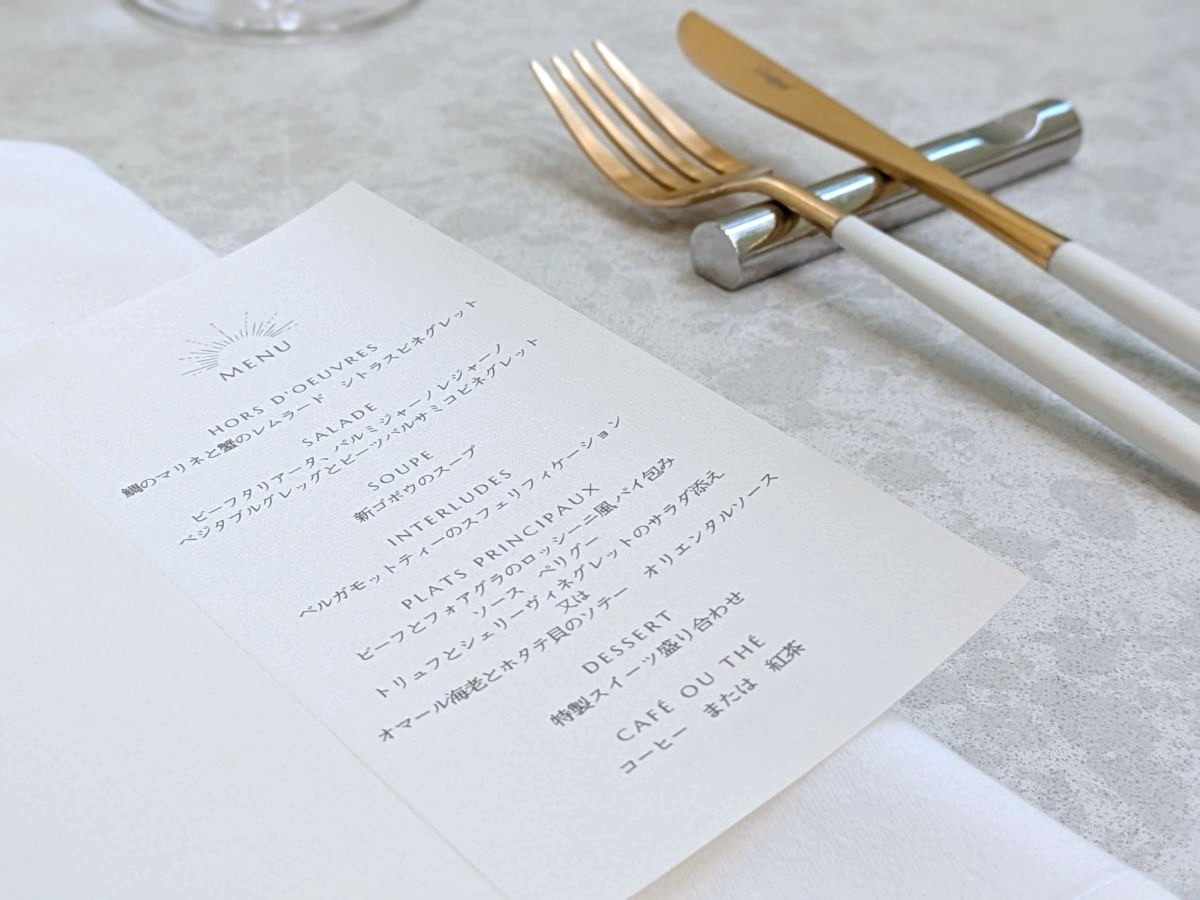 MENU
HORS D'OEUVRES
鯛のマリネと蟹のレムラード シトラスビネグレット
SALADE
ビーフタリアータ、パルミジャーノレジャーノ
ベジタブルグレッグとビーツバルサミコビネグレット
SOUPE
新ゴボウのスープ
INTERLUDES
ベルガモットティーのスフェリフィケーション
PLATS PRINCIPAUX
ビーフとフォアグラのロッシーニ風パイ包み
ソース ペリグー
トリュフとシェリーヴィネグレットのサラダ添え
又は
オマール海老とホタテ貝のソテー オリエンタルソース
DESSERT
特製スイーツ盛り合わせ
CAFÉ OU THÉ
コーヒー または 紅茶